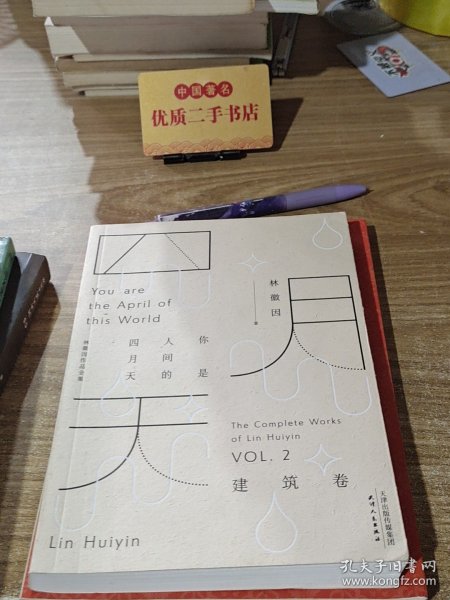 中国著名
优质二手书店
四
月
天
You are
the April of
this World
林徽因
著
你是
人间的
四月天
林徽因作品全集
The Complete Works
of Lin Huiyin
VOL. 2
建筑卷
Lin Huiyin
天津出版传媒集团
天津人民出版社
孔夫子旧书网
www.kongfz.com